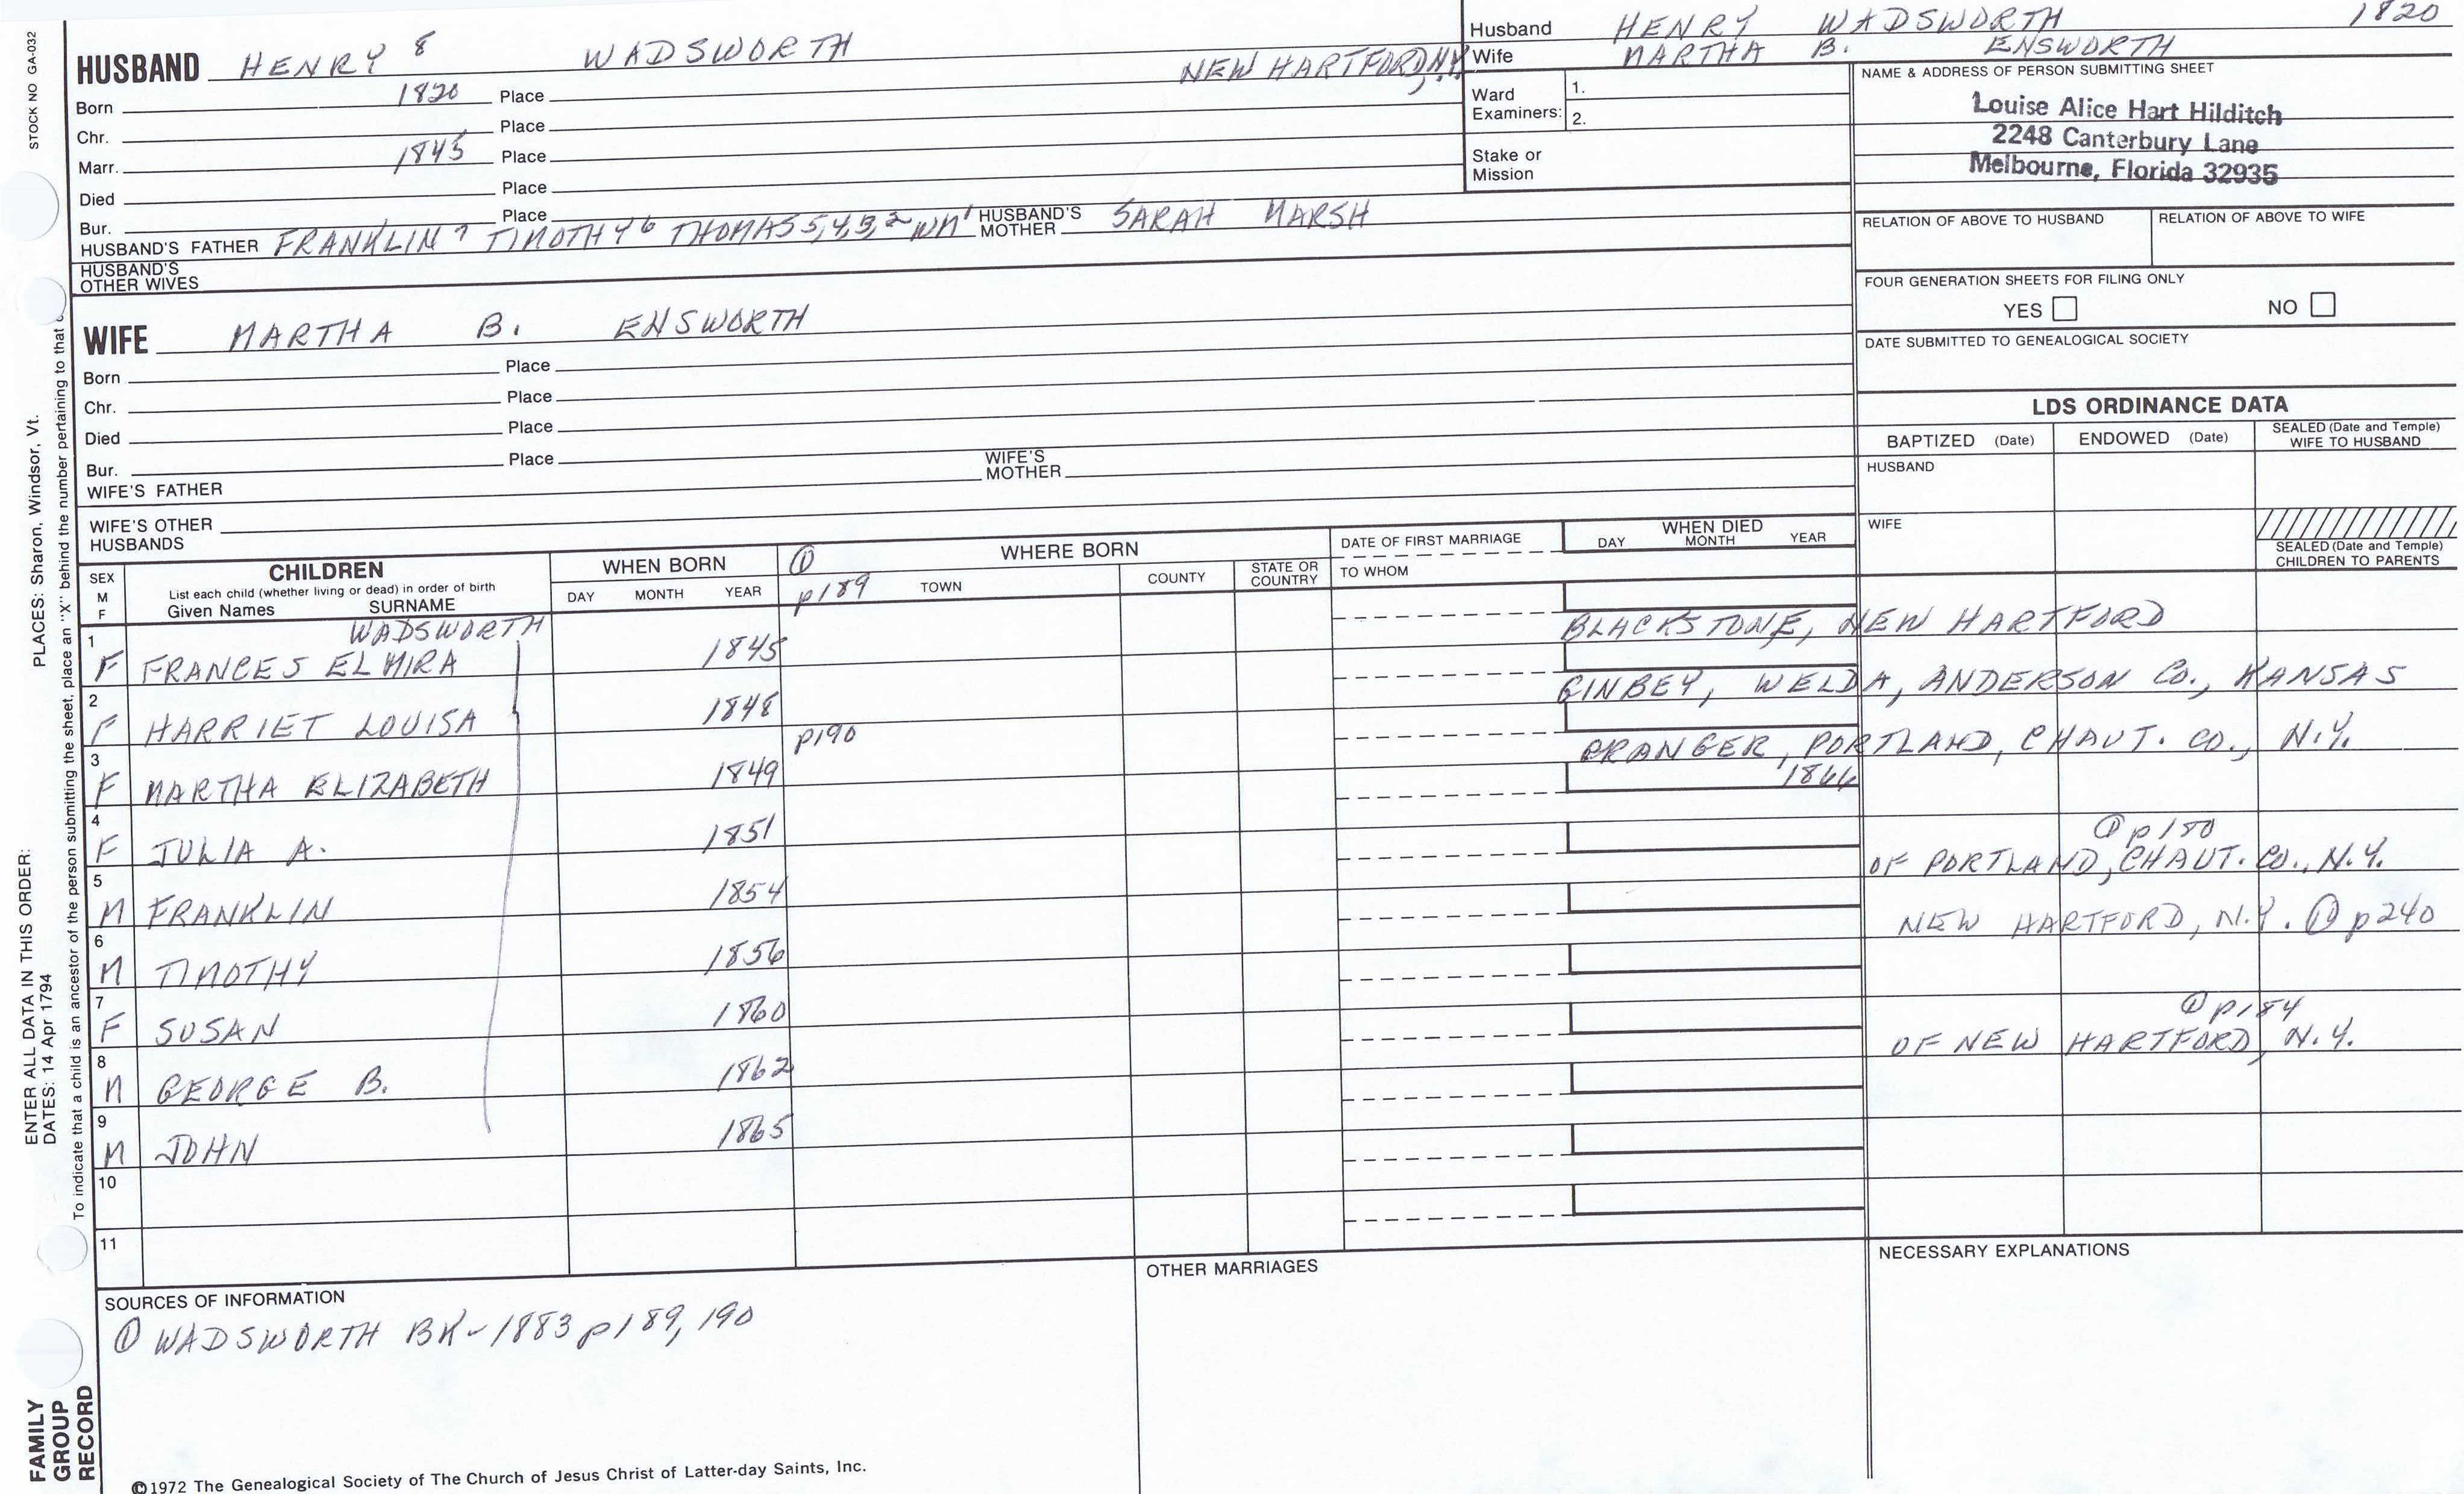 STOCK NO GA-032
HUSBAND HENRY 8 WADSWORTH
Born 1820 Place NEW HARTFORD, N.Y.
Chr. Place
Marr. 1845 Place
Died Place
Bur. Place
HUSBAND'S FATHER FRANKLIN 7 TIMOTHY 6 THOMAS 5,4,3,2 WM 1 HUSBAND'S MOTHER SARAH MARSH
HUSBAND'S OTHER WIVES
WIFE MARTHA B. ENSWORTH
Born Place
Chr. Place
Died Place
Bur. Place
WIFE'S FATHER WIFE'S MOTHER
WIFE'S OTHER HUSBANDS
Husband HENRY WADSWORTH 1820
Wife MARTHA B. ENSWORTH
Ward Examiners: 1.
2.
Stake or Mission
NAME & ADDRESS OF PERSON SUBMITTING SHEET
Louise Alice Hart Hilditch
2248 Canterbury Lane
Melbourne, Florida 32935
RELATION OF ABOVE TO HUSBAND RELATION OF ABOVE TO WIFE
FOUR GENERATION SHEETS FOR FILING ONLY
YES NO
DATE SUBMITTED TO GENEALOGICAL SOCIETY
LDS ORDINANCE DATA
BAPTIZED (Date) ENDOWED (Date) SEALED (Date and Temple) WIFE TO HUSBAND
HUSBAND
WIFE
SEALED (Date and Temple) CHILDREN TO PARENTS
SEX M F
CHILDREN
List each child (whether living or dead) in order of birth
Given Names SURNAME
WHEN BORN
DAY MONTH YEAR
① p189
WHERE BORN
TOWN COUNTY STATE OR COUNTRY
DATE OF FIRST MARRIAGE
TO WHOM
WHEN DIED
DAY MONTH YEAR
WADSWORTH
1 F FRANCES ELMIRA 1845 BLACKSTONE, NEW HARTFORD
2 F HARRIET LOUISA 1848 WELDA, ANDERSON CO., KANSAS
p190
3 F MARTHA ELIZABETH 1849 PORTLAND, CHAUT. CO., N.Y.
1866
4 F JULIA A. 1851
① p180
5 M FRANKLIN 1854 OF PORTLAND, CHAUT. CO., N.Y.
6 M TIMOTHY 1856 NEW HARTFORD, N.Y. ① p240
7 F SUSAN 1860
① p184
8 M GEORGE B. 1862 OF NEW HARTFORD, N.Y.
9 M JOHN 1865
10
11
SOURCES OF INFORMATION
① WADSWORTH BK - 1883 p189, 190
OTHER MARRIAGES
NECESSARY EXPLANATIONS
©1972 The Genealogical Society of The Church of Jesus Christ of Latter-day Saints, Inc.
ENTER ALL DATA IN THIS ORDER:
DATES: 14 Apr 1794
PLACES: Sharon, Windsor, Vt.
To indicate that a child is an ancestor of the person submitting the sheet, place an "X" behind the number pertaining to that
FAMILY GROUP RECORD